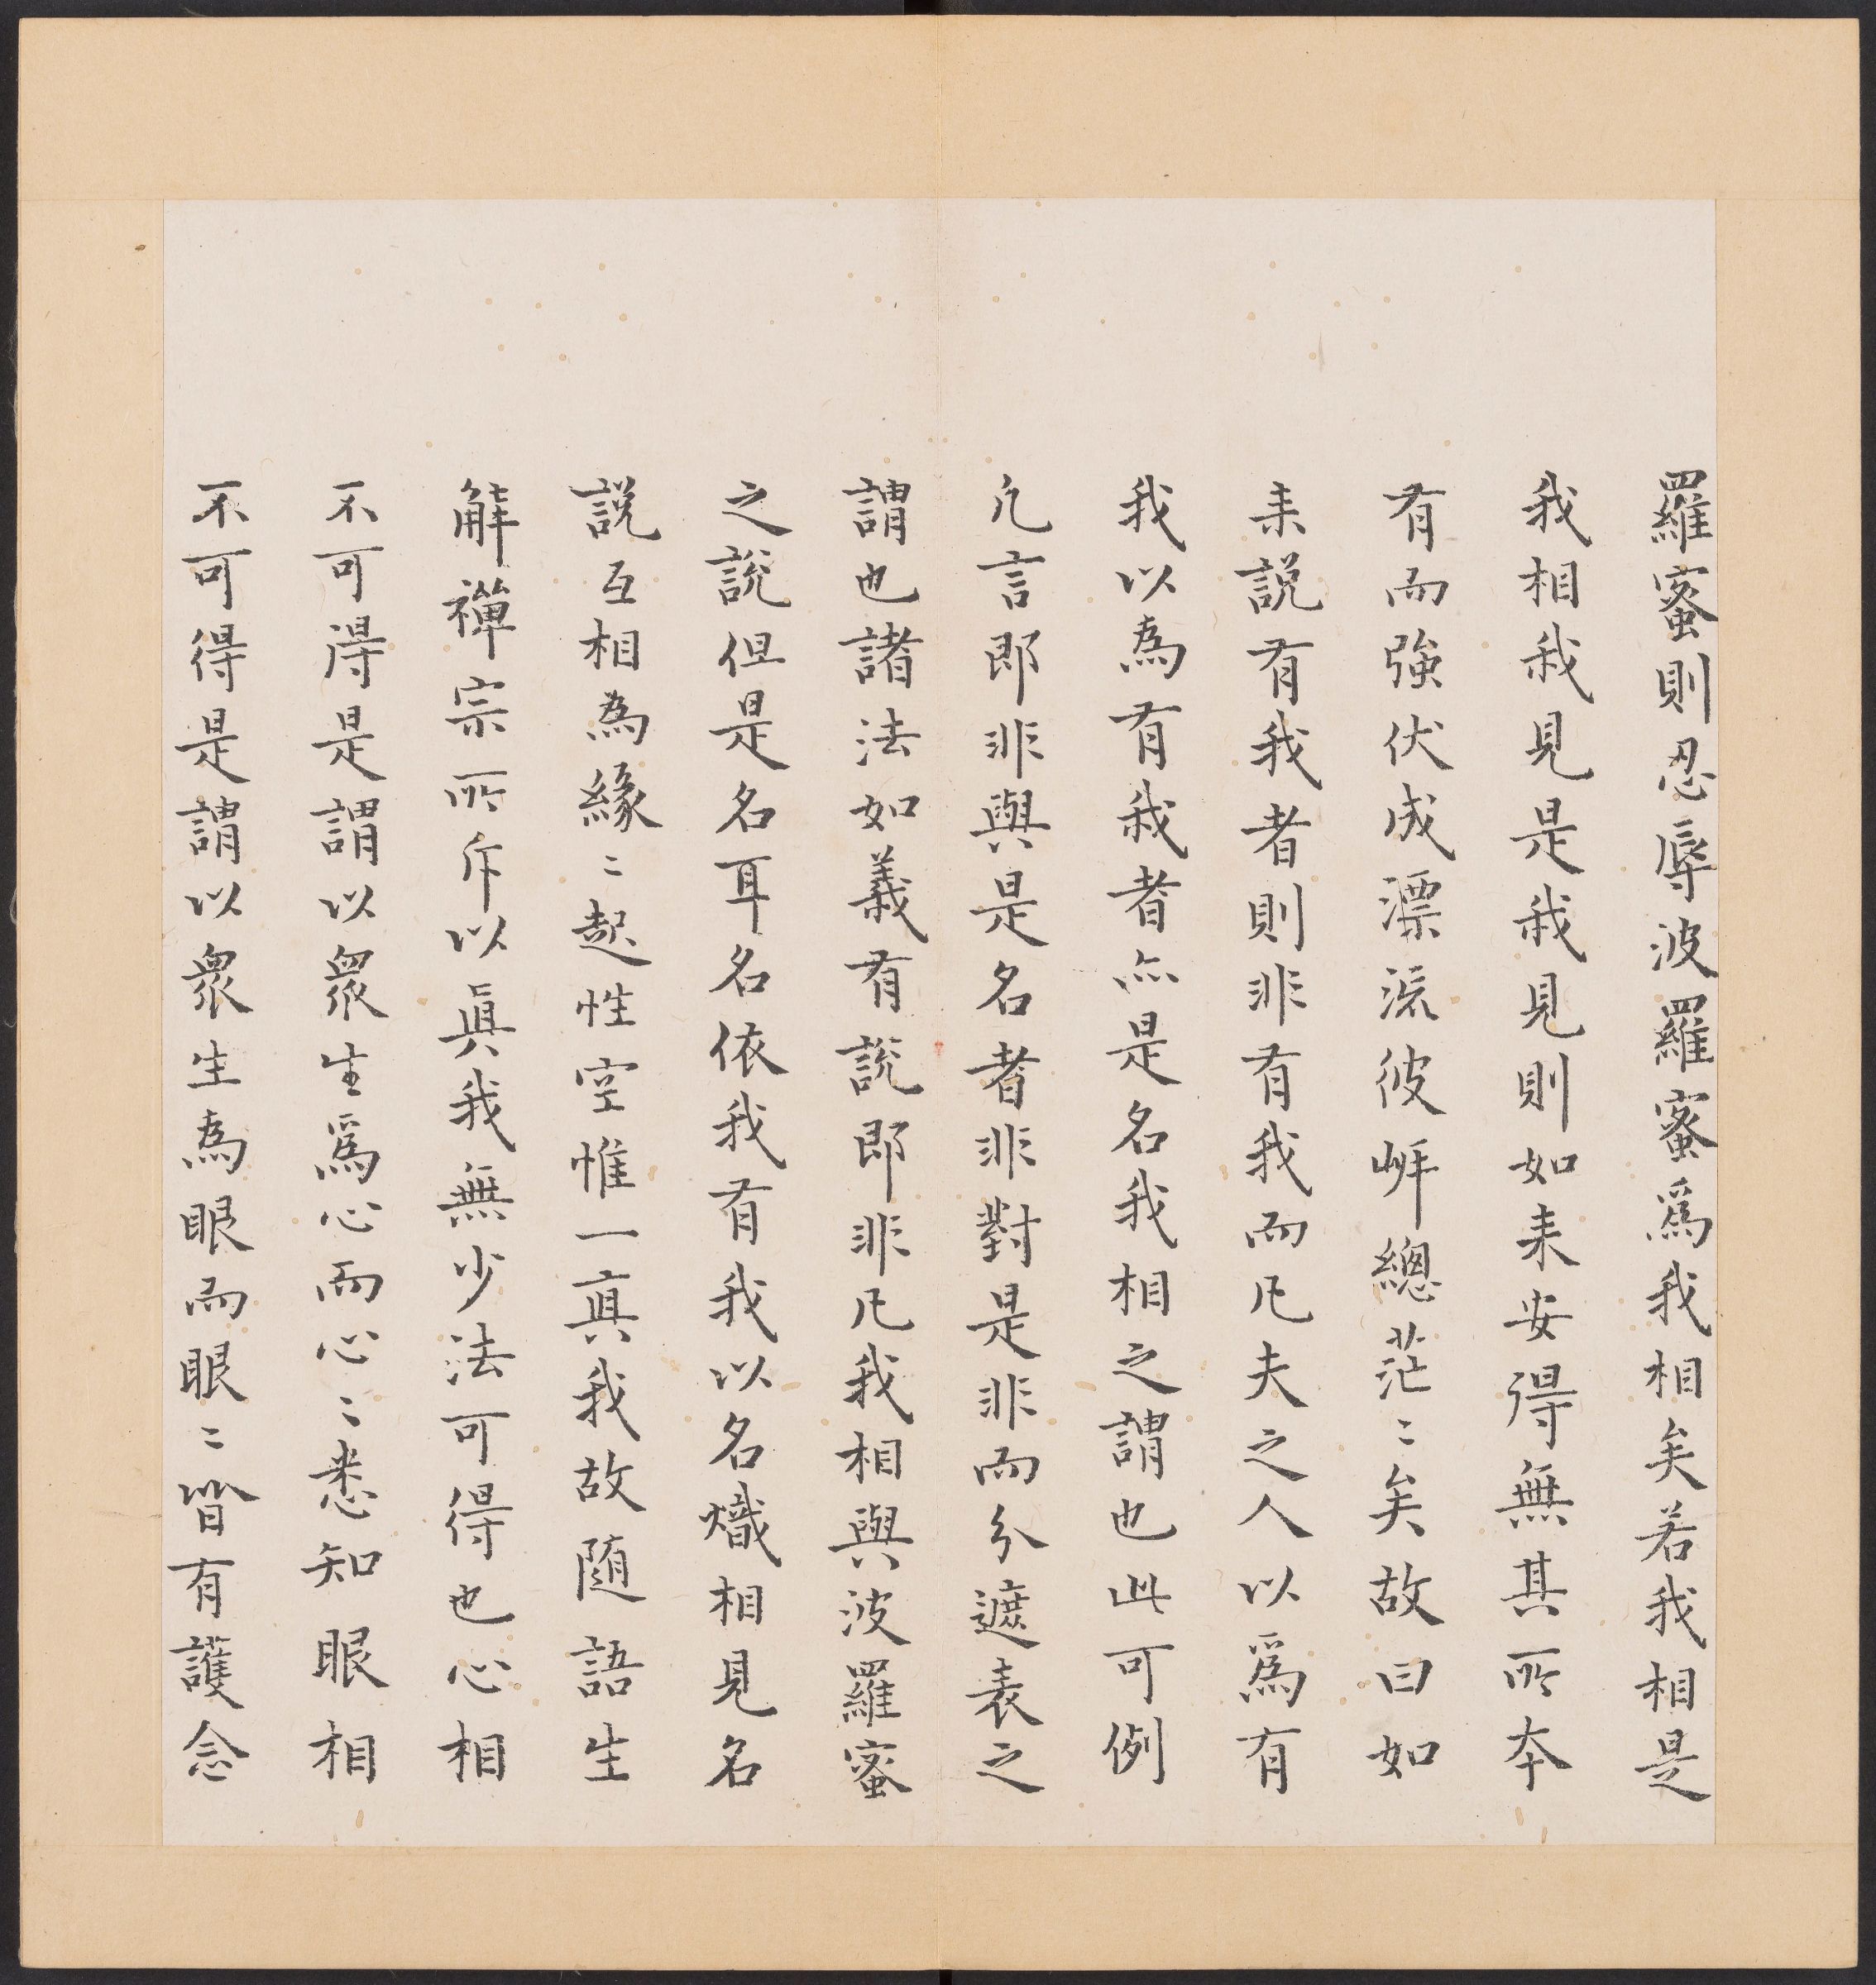 羅蜜則忍辱波羅蜜爲我相矣若我相是
我相我見是我見則如来安得無其所本
有而強伏成漂流彼岸總茫〻矣故曰如
来説有我者則非有我而凡夫之人以爲有
我以為有我者亦是名我相之謂也此可例
凡言即非與是名者非對是非而分遮表之
謂也諸法如義有說即非凡我相與波羅蜜
之說但是名耳名依我有我以名熾相見名
説互相為緣〻起性空惟一真我故随語生
解禪宗所斥以眞我無少法可得也心相
不可得是謂以衆生爲心而心〻悉知眼相
不可得是謂以衆生為眼而眼〻皆有護念